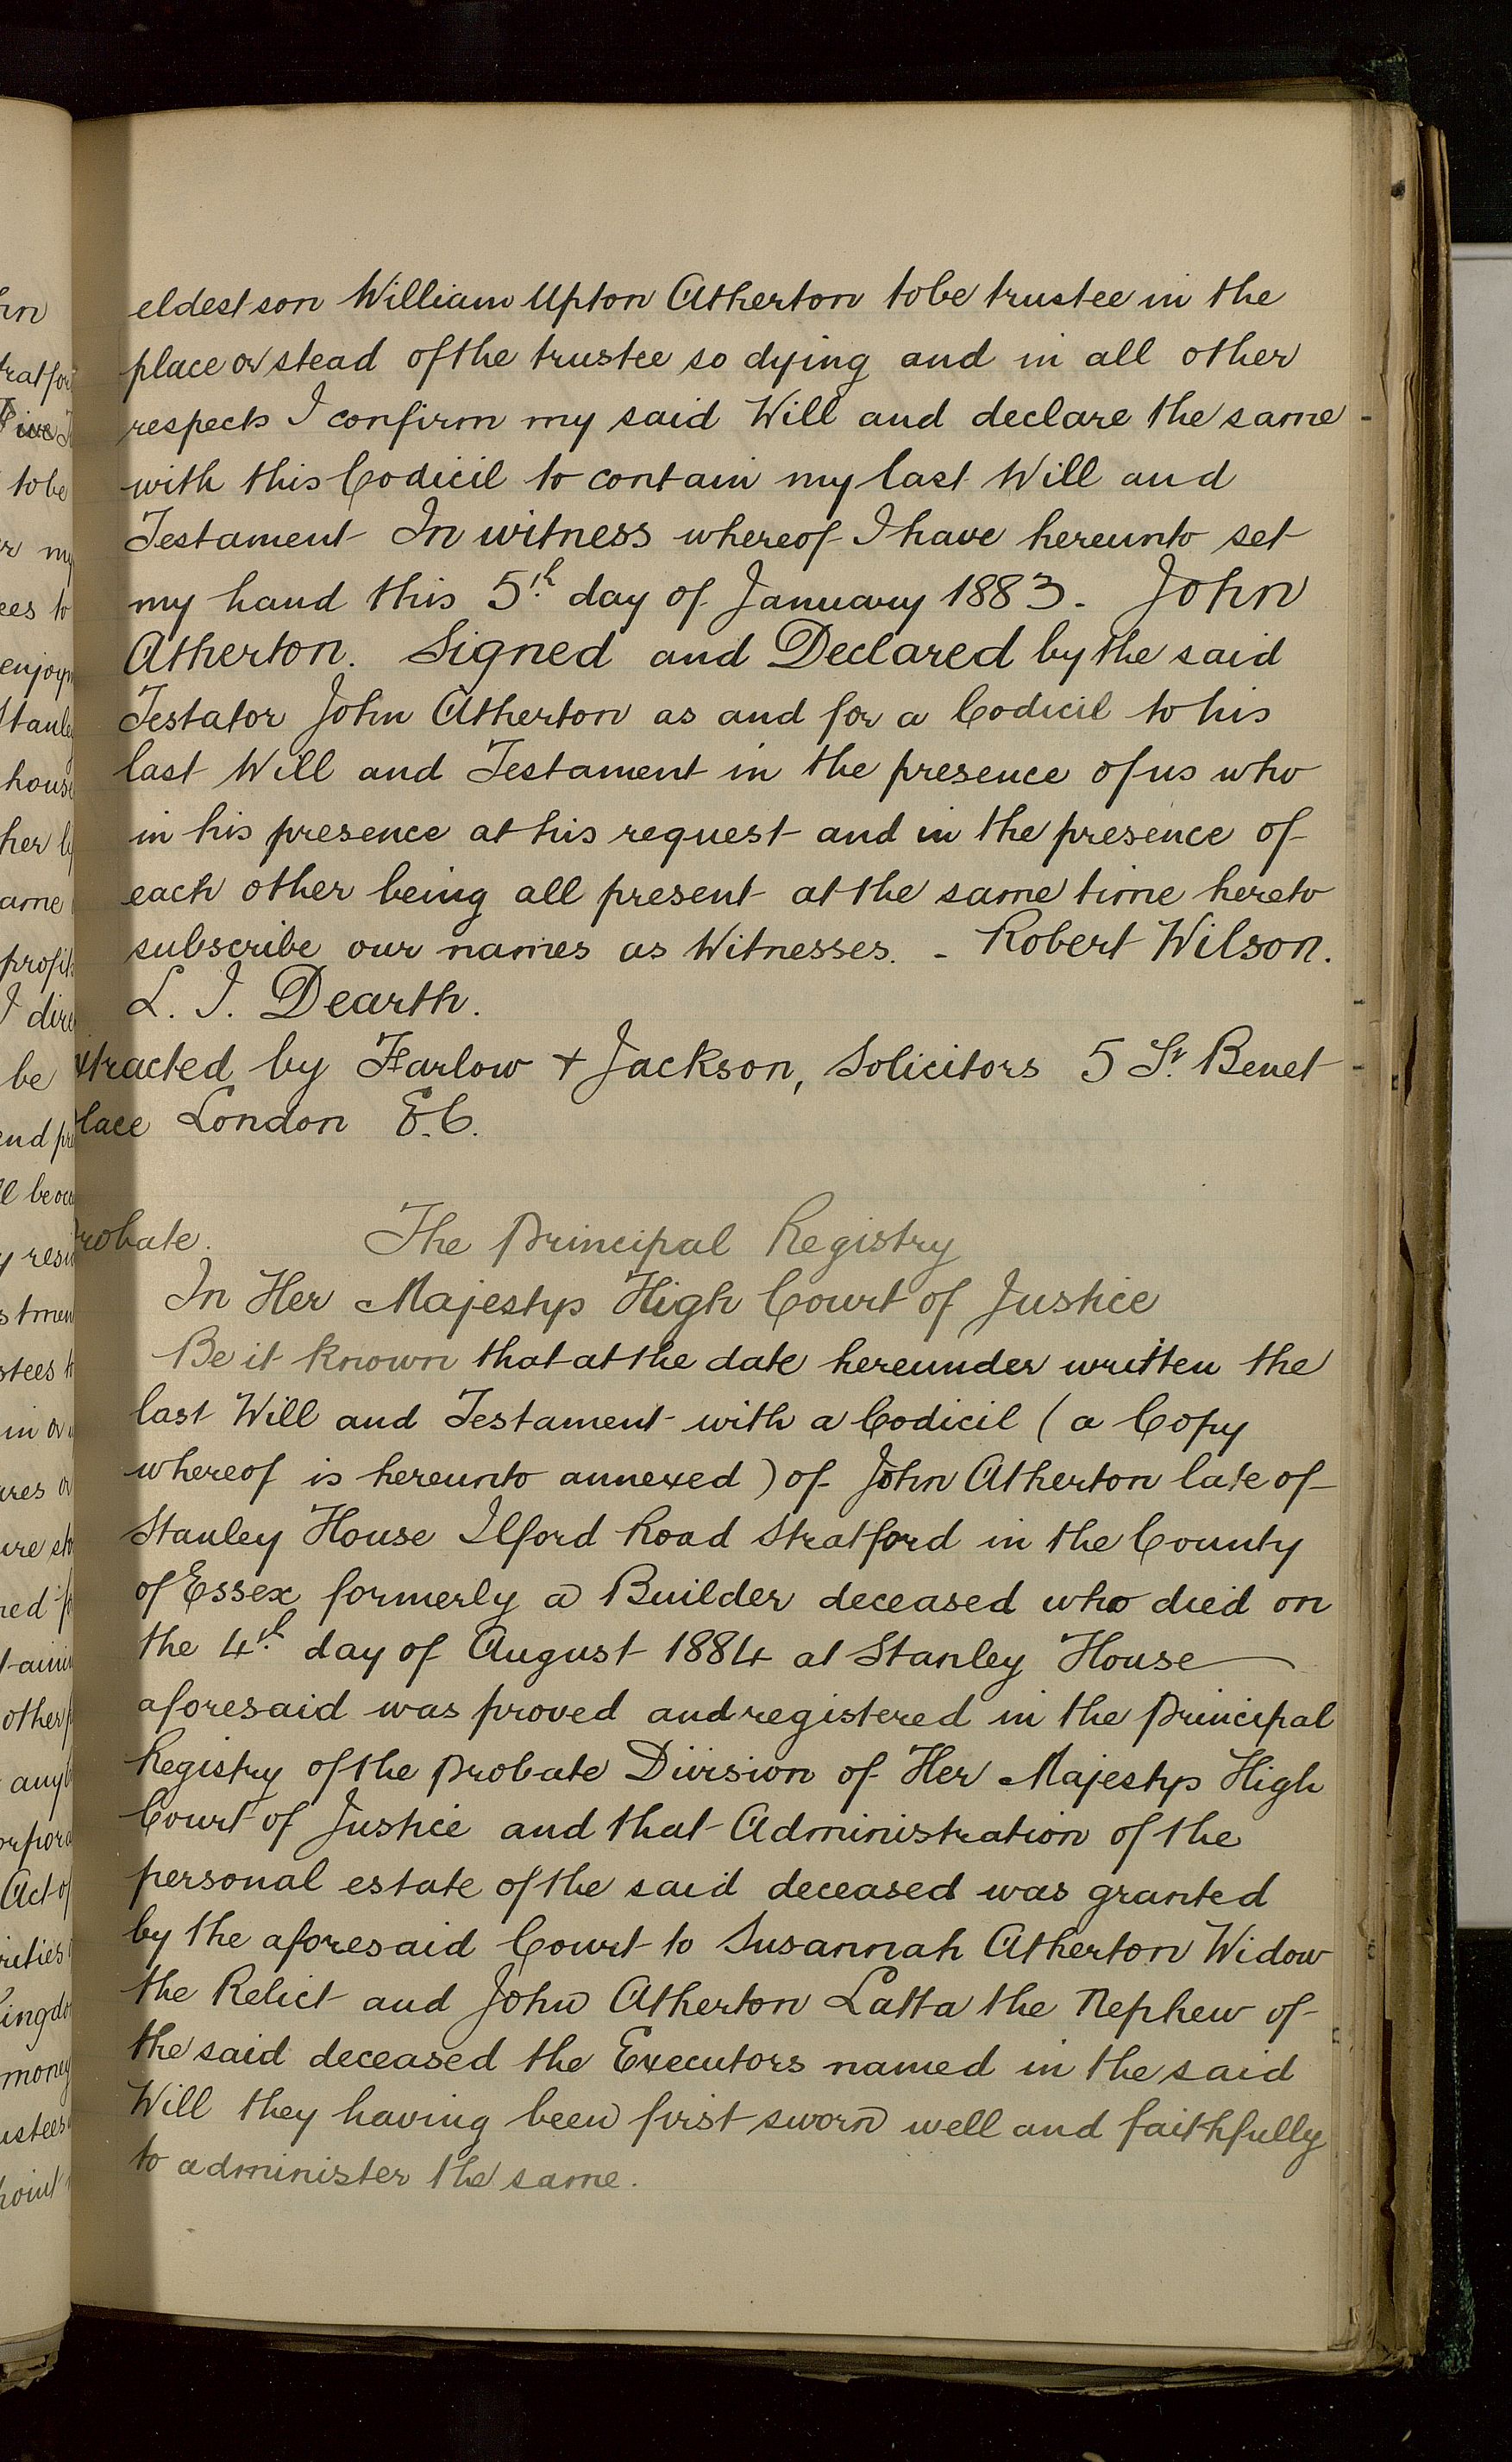 eldest son William Upton Atherton to be trustee in the
place or stead of the trustee so dying and in all other
respects I confirm my said Will and declare the same -
with this Codicil to contain my last Will and
Testament In witness whereof I have hereunto set
my hand this 5th day of January 1883. John
Atherton. Signed and Declared by the said
Testator John Atherton as and for a Codicil to his
last Will and Testament in the presence of us who
in his presence at his request and in the presence of
each other being all present at the same time hereto
subscribe our names as Witnesses. - Robert Wilson.
L. I. Dearth.
xtracted by Harlow + Jackson, Solicitors 5 St. Benet -
lace London E.C.
robate. The Principal Registry
In Her Majestys High Court of Justice
Be it known that at the date hereunder written the
last Will and Testament with a Codicil (a Copy
whereof is hereunto annexed) of John Atherton late of
Stanley House Ilford Road Stratford in the County
of Essex formerly a Builder deceased who died on
the 4th day of August 1884 at Stanley House
aforesaid was proved and registered in the Principal
Registry of the Probate Division of Her Majestys High
Court of Justice and that Administration of the
personal estate of the said deceased was granted
by the aforesaid Court to Susannah Atherton Widow
the Relict and John Atherton Latta the Nephew of
the said deceased the Executors named in the said
Will they having been first sworn well and faithfully
to administer the same.